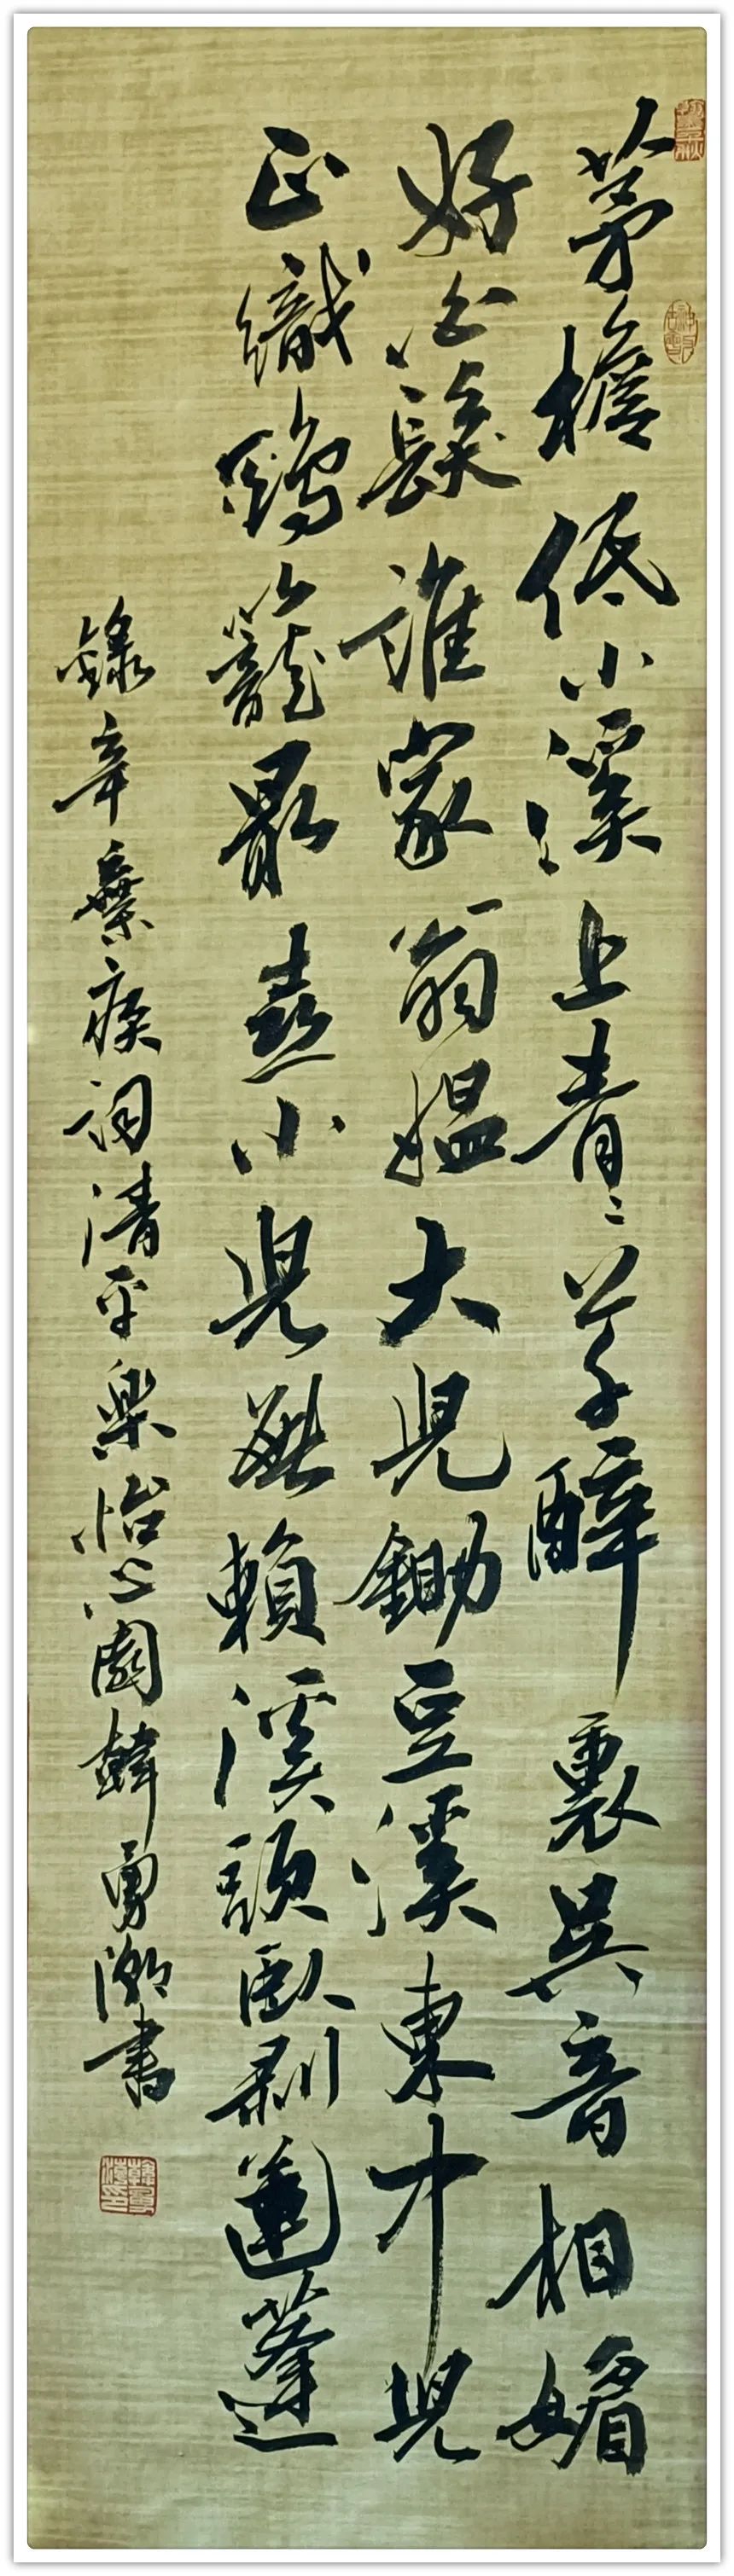 茅檐低小溪上青〻草醉裏吳音相媚
好白髮誰家翁媼大兒鋤豆溪東中兒
正織鷄籠最喜小兒無賴溪頭臥剥蓮蓬
錄辛棄疾詞清平樂怡心園韓勇潮書